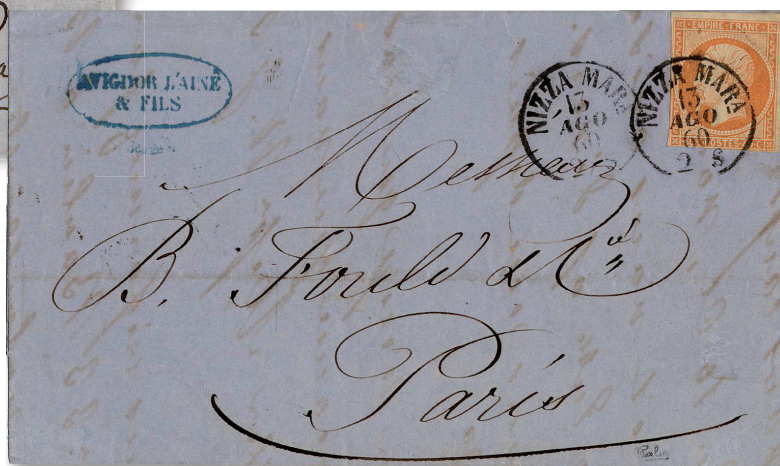 AVIGDOR L'AINÉ
& FILS
NIZZA MARA
13
AGO
60
NIZZA MARA
13
AGO
60
2 S
EMPIRE FRANC
POSTES
Messieurs
B. Fould & Cie
Paris